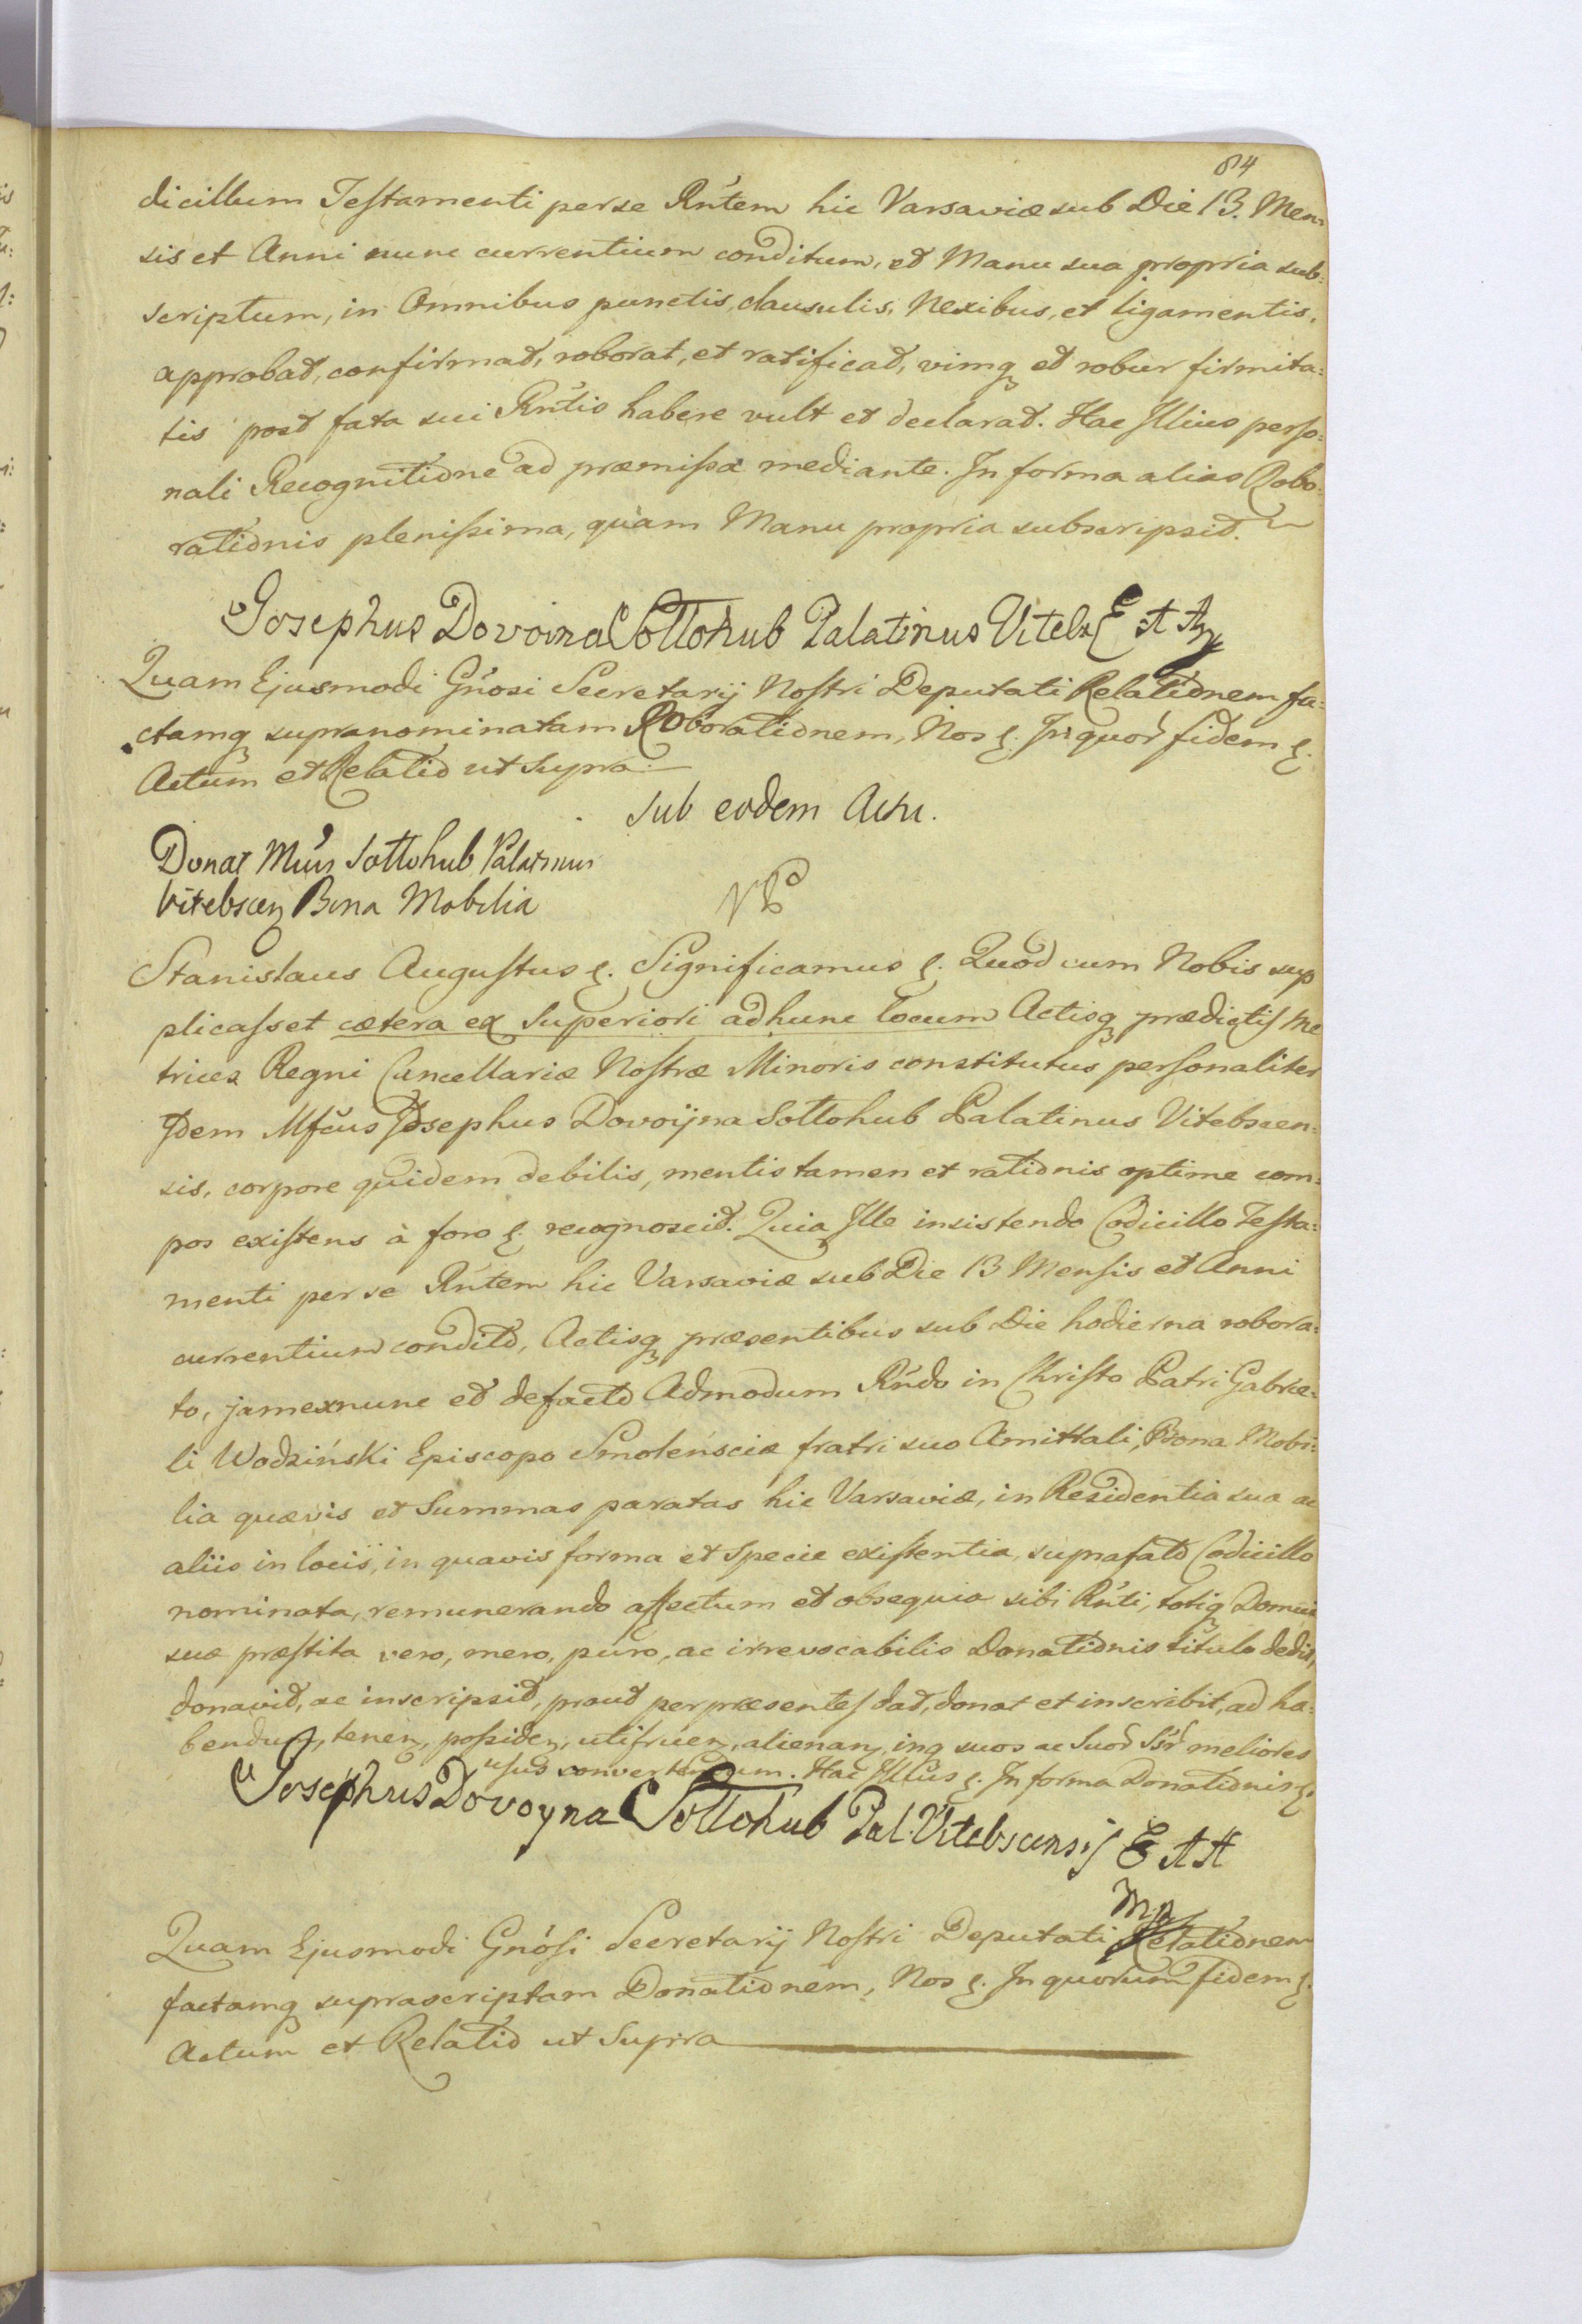 84
dicillum Testamenti per se Rńtem hic Varsaviæ sub Die 13. Men=
sis et Anni nunc currentium conditum, et Manu sua propria sub=
scriptum, in Omnibus punctis, clausulis, Nexibus, et ligamentis,
approbat, confirmat, roborat, et ratificat, vimq et robur firmita=
tis post fata sui Rńtis habere vult et declarat. Hac Illius perso=
nali Recognitione ad præmissa mediante. In forma alias Robo=
rationis plenissima, quam Manu propria subscripsit.
Josephus Dovoina Sołłohub Palatinus Vitebs
Quam Ejusmodi Gńosi Secretarij Nostri Deputati Relationem fa=
ctamq supranominatam Roborationem, Nos &. In quor fidem &.
Actum et Relatio ut Supra
Sub eodem Actu.
Donat Mcus Sołłohub Palatinus
Vitebscen Bona Mobilia
Stanislaus Augustus &. Significamus &. Quod cum Nobis sup
plicasset cætera ex Superiori ad hunc locum Actisq prædictis Me
trices Regni Cancellariæ Nostræ Minoris constitutus personaliter
Idem Mfcus Josephus Dovoÿna Sołłohub Palatinus Vitebscen=
sis, corpore quidem debilis, mentis tamen et rationis optime com=
pos existens à foro &. recognoscit. Quia Ille insistendo Codicillo Testa=
menti per se Rńtem hic Varsaviæ sub Die 13 Mensis et Anni
currentium condito, Actisq præsentibus sub Die hodierna robora=
to, jam ex nunc et de facto Admodum Rńdo in Christo Patri Gabrie=
li Wodziński Episcopo Smoleńsciæ fratri suo Amittali, Bona Mobi=
lia quævis et Summas paratas hic Varsaviæ, in Residentia sua ac
aliis in locis, in quavis forma et Specie existentia, suprafato Codicillo
nominata, remunerando affectum et obsequia sibi Rńti, totiq Domui
suæ præstita vero, mero, puro, ac irrevocabilis Donationis titulo dedit,
donavit, ac inscripsit, prout per præsentes dat, donat et inscribit, ad ha=
bendu, tenen, possiden, utifruen, alienan, inq suos ac Suor Sśr meliores
usus convertendum. Hac Illius &. In forma Donationis &.
Josephus Dovoyna Sołłohub Pal: Vitebscensis
Mp
Quam Ejusmodi Gńosi Secretarij Nostri Deputati Relationem
factamq suprascriptam Donationem, Nos &. In quorum fidem &.
Actum et Relatio ut Supra